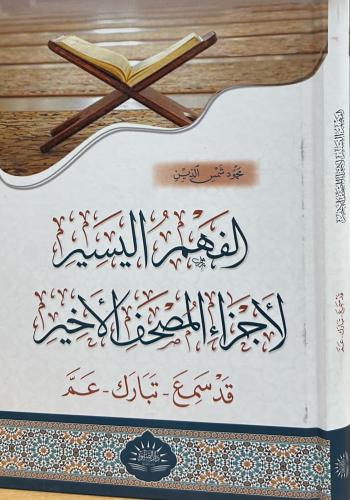 محمود شمس الدين
الفهم اليسير
لأجزاء المصحف الأخير
قد سمع - تبارك - عم